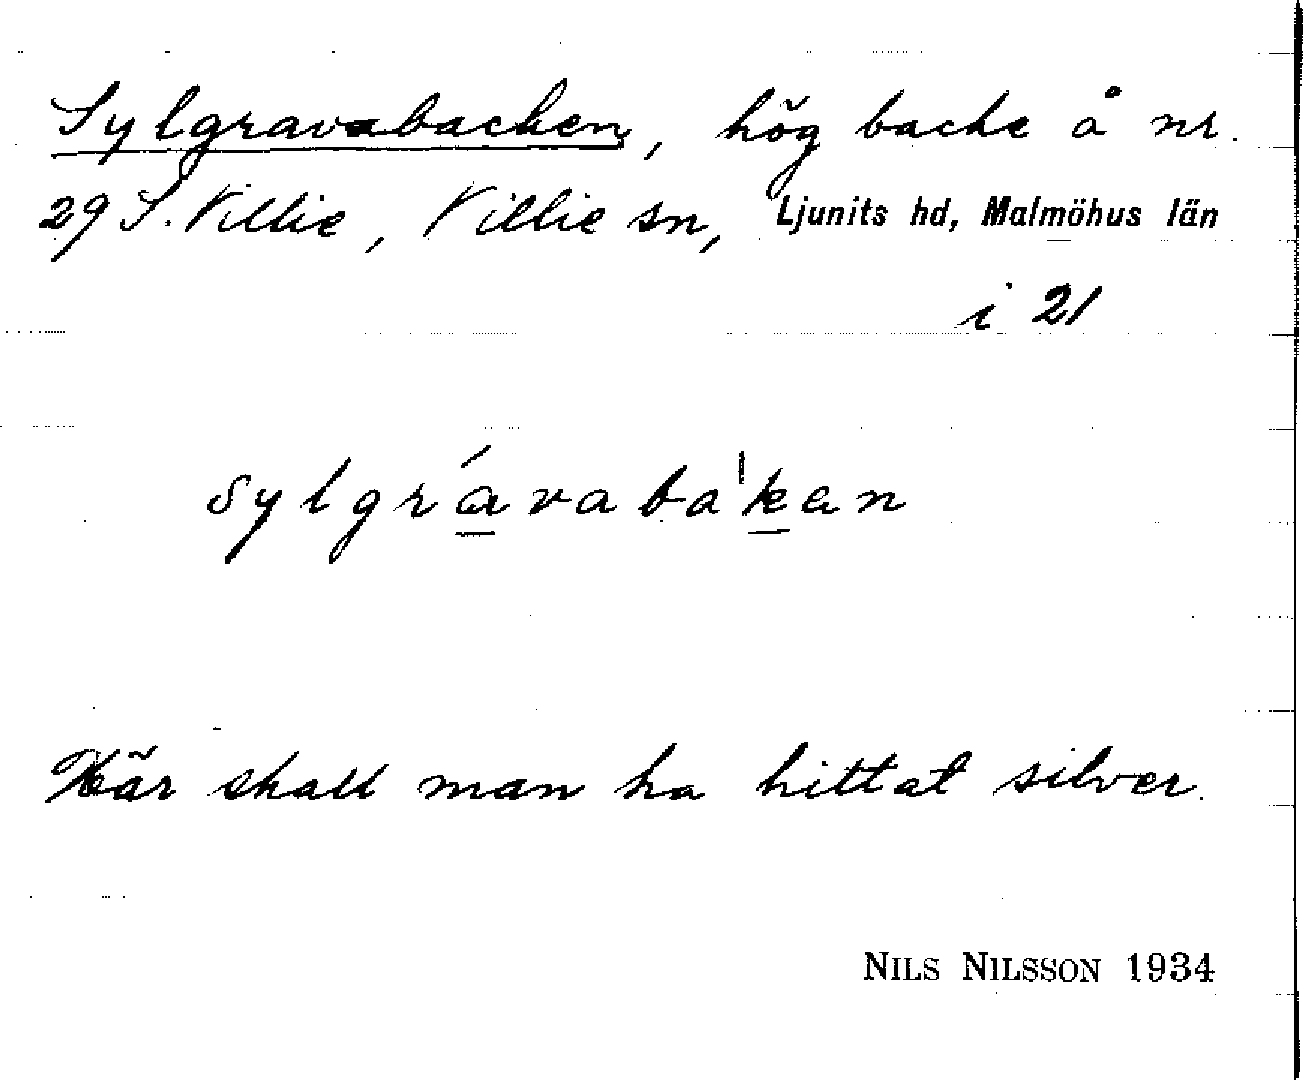 Sylgravabacken, hög backe å nr.
29 S. Villie, Villie sn, Ljunits hd, Malmöhus län
i 21
sylgrávaba'kan
Här skall man ha hittat silver.
NILS NILSSON 1934